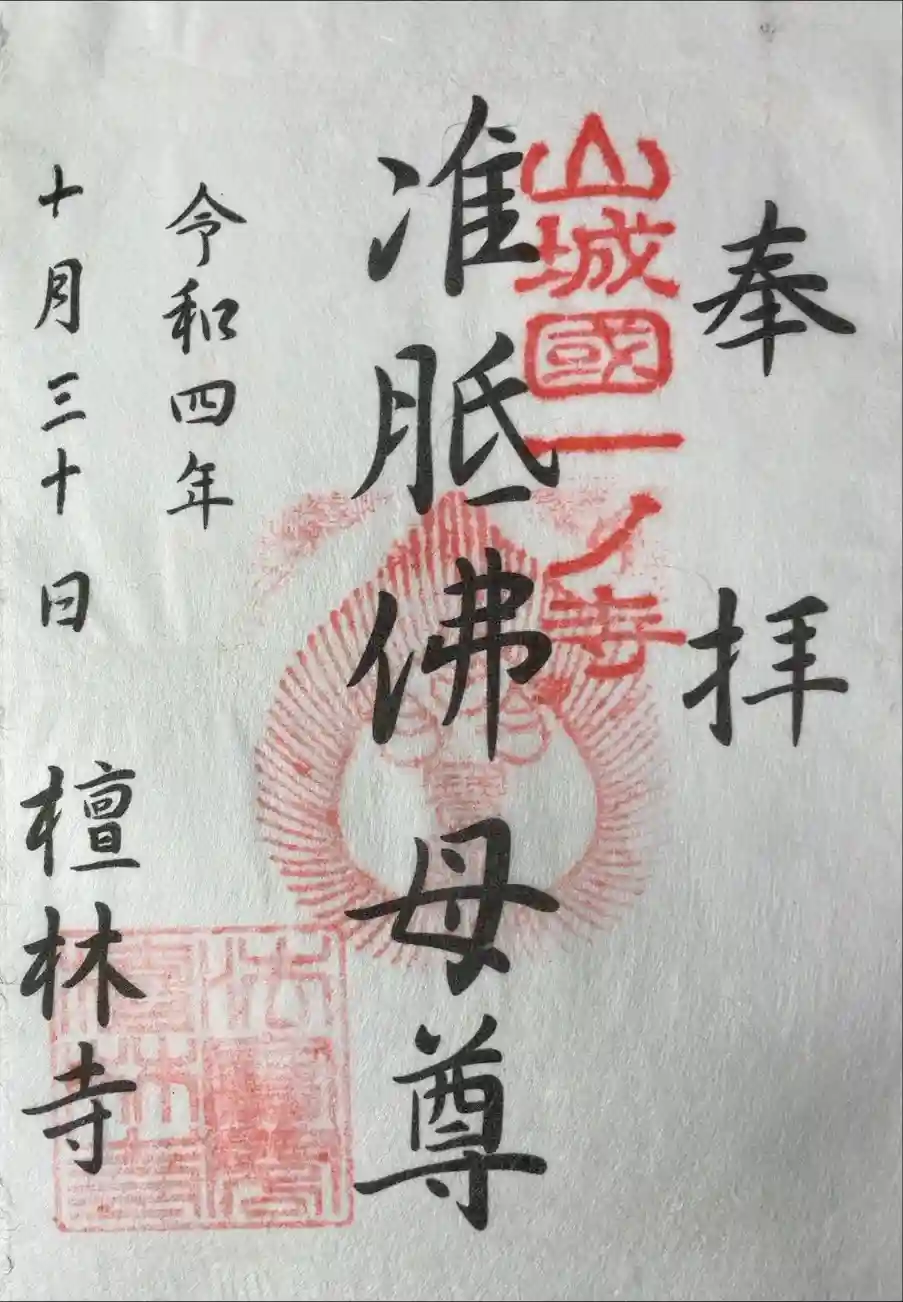 奉拝
山城國一ノ寺
准胝佛母尊
令和四年
十月三十日
檀林寺